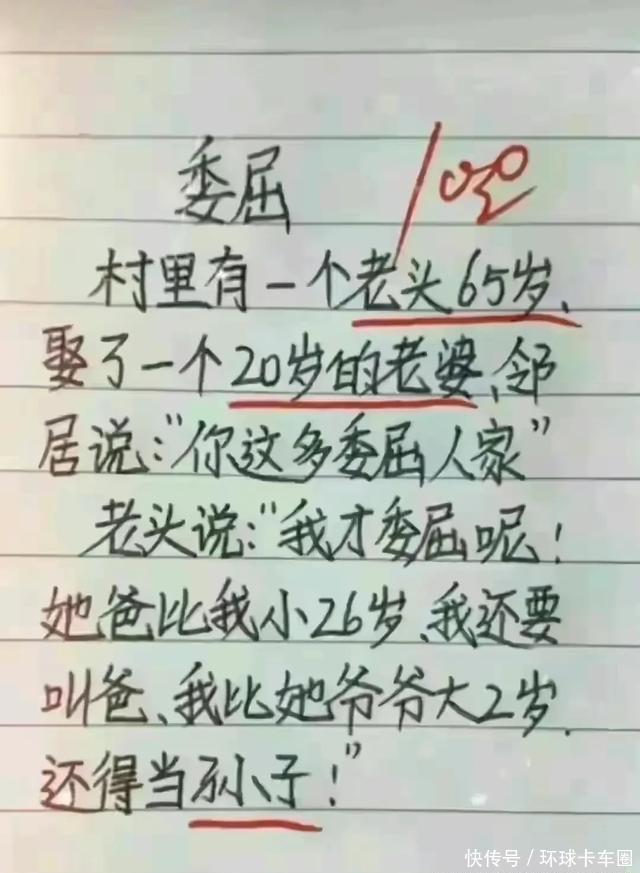 委屈
村里有一个老头65岁、
娶了一个20岁的老婆、邻
居说："你这多委屈人家"
老头说："我才委屈呢！
她爸比我小26岁、我还要
叫爸、我比她爷爷大2岁.
还得当孙子！"
快传号/环球卡车圈